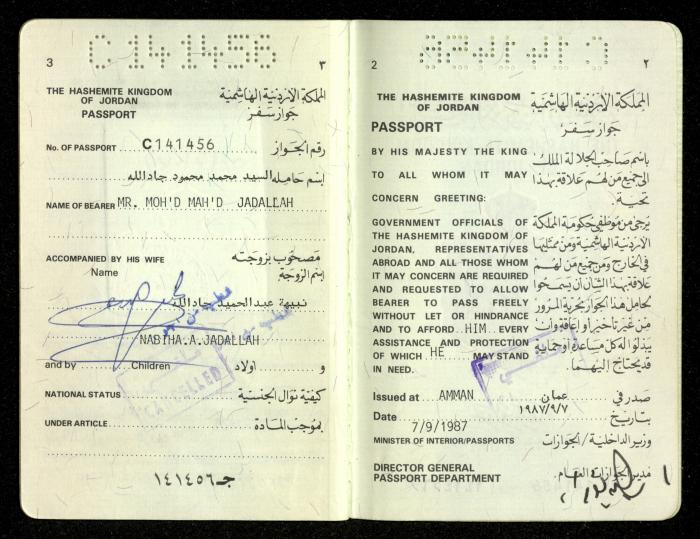 C141456
3
٣
THE HASHEMITE KINGDOM
OF JORDAN
PASSPORT
المملكة الأردنية الهاشمية
جواز سفر
No. OF PASSPORT C141456 رقم الجواز
إسم حامله السيد محمد محمود جادالله
NAME OF BEARER MR. MOH'D MAH'D JADALLAH
ACCOMPANIED BY HIS WIFE مصحوب بزوجته
Name إسم الزوجة
نبيهة عبدالحميد جادالله
NABIHA.A.JADALLAH
and by Children اولاد و
CANCELLED
NATIONAL STATUS كيفية نوال الجنسية
UNDER ARTICLE بموجب المادة
جـ ١٤١٤٥٦
2
٢
THE HASHEMITE KINGDOM
OF JORDAN
المملكة الأردنية الهاشمية
PASSPORT
جواز سفر
BY HIS MAJESTY THE KING
TO ALL WHOM IT MAY
CONCERN GREETING:
باسم صاحب الجلالة الملك
الى جميع من لهم علاقة بهذا
تحية.
GOVERNMENT OFFICIALS OF
THE HASHEMITE KINGDOM OF
JORDAN, REPRESENTATIVES
ABROAD AND ALL THOSE WHOM
IT MAY CONCERN ARE REQUIRED
AND REQUESTED TO ALLOW
BEARER TO PASS FREELY
WITHOUT LET OR HINDRANCE
AND TO AFFORD HIM EVERY
ASSISTANCE AND PROTECTION
OF WHICH HE MAY STAND
IN NEED.
يرجى من موظفي حكومة المملكة
الأردنية الهاشمية ومن ممثليها
في الخارج ومن جميع من لهم
علاقة بهذا الشأن ان يسمحوا
لحامل هذا الجواز بحرية المرور
من غير تأخير او إعاقة وان
يبذلوا له كل مساعدة او حماية
قد يحتاج اليهما.
Issued at AMMAN عمان صدر في
١٩٨٧/٩/٧
Date 7/9/1987 بتاريخ
MINISTER OF INTERIOR/PASSPORTS وزير الداخلية/الجوازات
DIRECTOR GENERAL
PASSPORT DEPARTMENT
مدير الجوازات العام